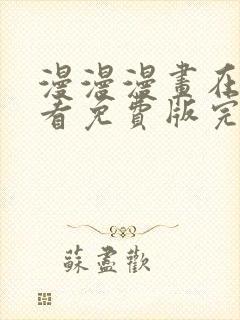 漫漫漫畫在
看免費版完
蘇盡歡